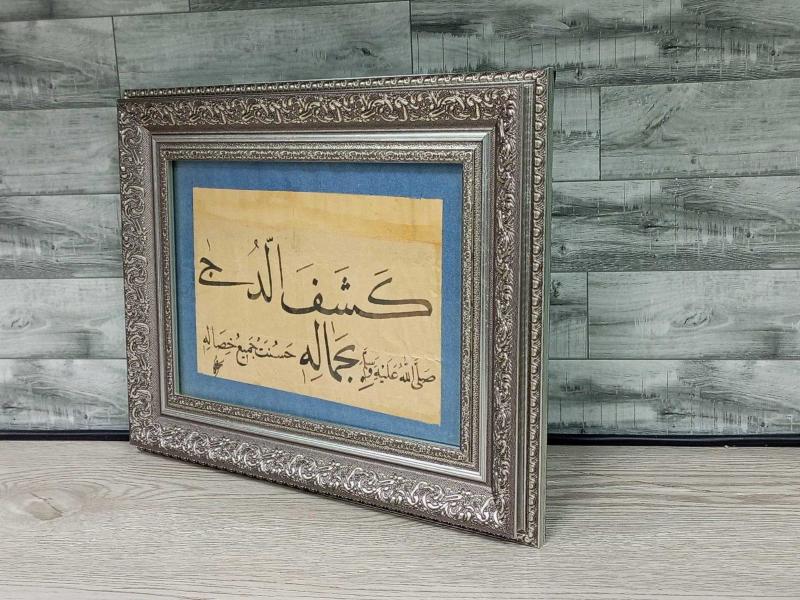 كَشَفَ الدُّجىٰ
بجَمَالِهِ حَسُنَتْ جَمِيعُ خِصَالِهِ
صَلَّى اللّٰهُ عَلَيْهِ وَسَلَّم